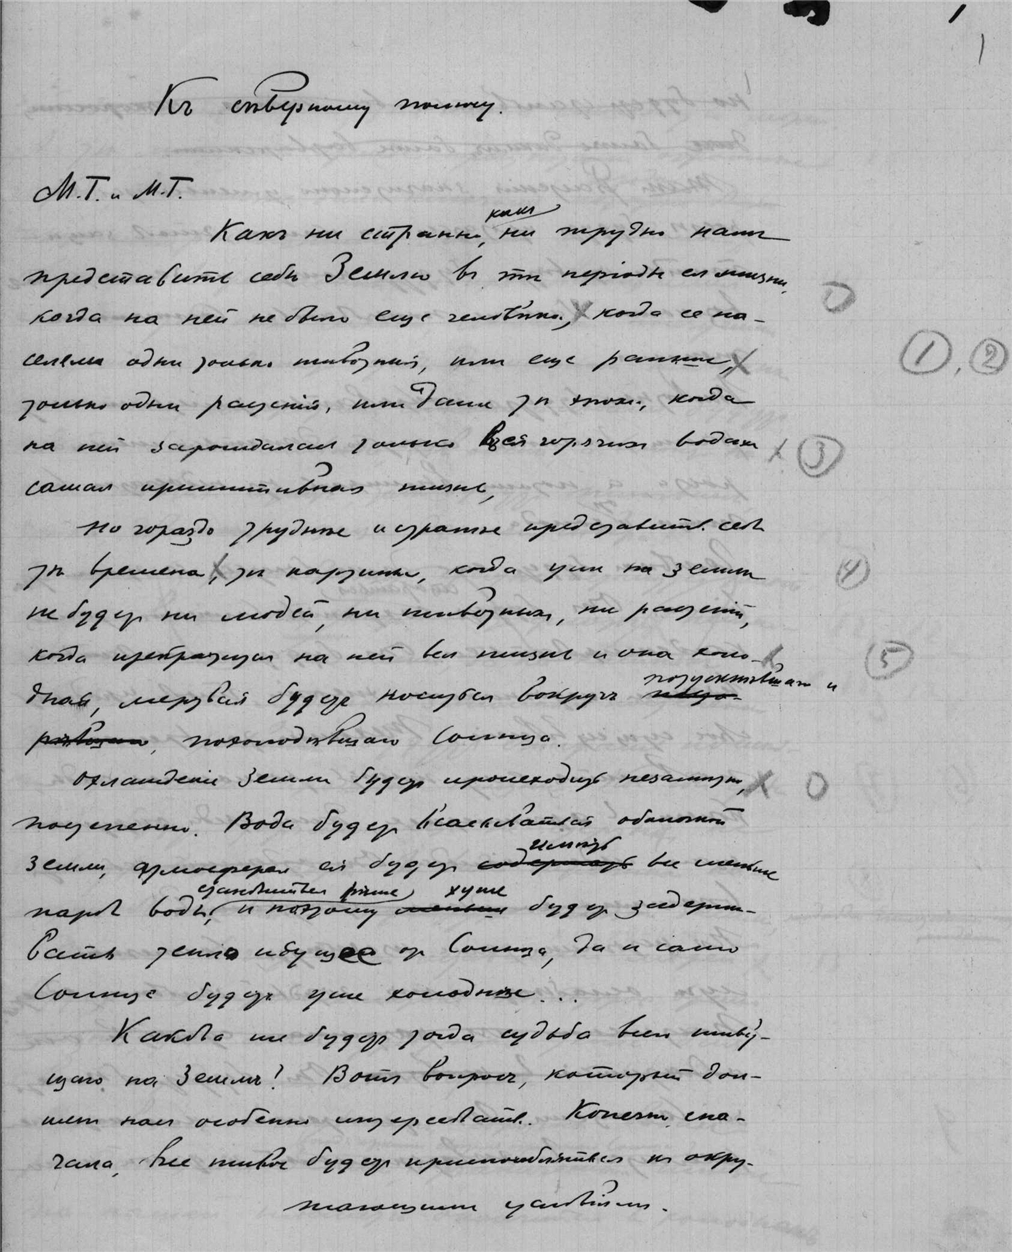 1
Къ сѣверному полюсу.
М.Г. и М.Г.
какъ
Какъ ни странно, ни трудно намъ
представить себѣ Землю въ тѣ періоды ея жизни,
когда на ней не было еще человѣка, когда ее на-
селяли одни только животныя, или еще раньше,
①, ②
только одни растенія, или даже та эпоха, когда
на ней зарождалась только въ горячихъ водахъ
③
самая примитивная жизнь,
но гораздо труднѣе и страннѣе представить себѣ
тѣ времена, тѣ картины, когда уже на земли
④
не будетъ ни людей, ни животныхъ, ни растеній,
когда прекратится на ней вся жизнь и она холо-
⑤
потускнѣвшаго и
дная, мертвая будетъ носиться вокругъ
похолоднѣвшаго Солнца.
Охлажденіе Земли будетъ происходить незамѣтно,
постепенно. Вода будетъ всасываться оболочкой
имѣть
Земли, атмосфера ея будетъ содержать все меньше
становиться рѣже хуже
паровъ воды, и потому меньше будетъ задержи-
вать тепло идущее отъ Солнца, да и само
Солнце будетъ уже холоднѣе...
Какова же будетъ тогда судьба всего живу-
щаго на Землѣ! Вотъ вопросъ, который дол-
женъ насъ особенно интересовать. Конечно, сна-
чала, все живое будетъ приспособляться къ окру-
жающимъ условіямъ.